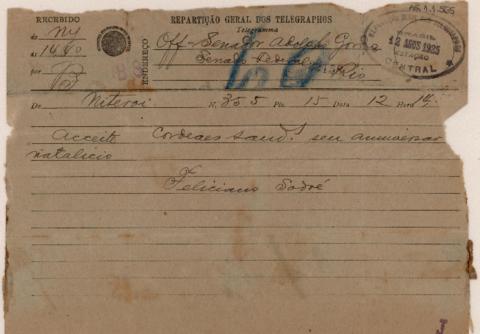 RECEBIDO
de Ny
ás 1460
por
REPARTIÇÃO GERAL DOS TELEGRAPHOS
Telegramma
ENDEREÇO
Off. Senador Adolpho Gordo
Senado Federal
Rio
BRASIL
12 AGOS 1925
ESTAÇÃO
CENTRAL
De Niteroi N. 355 Pls. 15 Data 12 Hora 14
Acceite Cordeaes saud. seu anniversar
natalicio
Feliciano Sodré
J